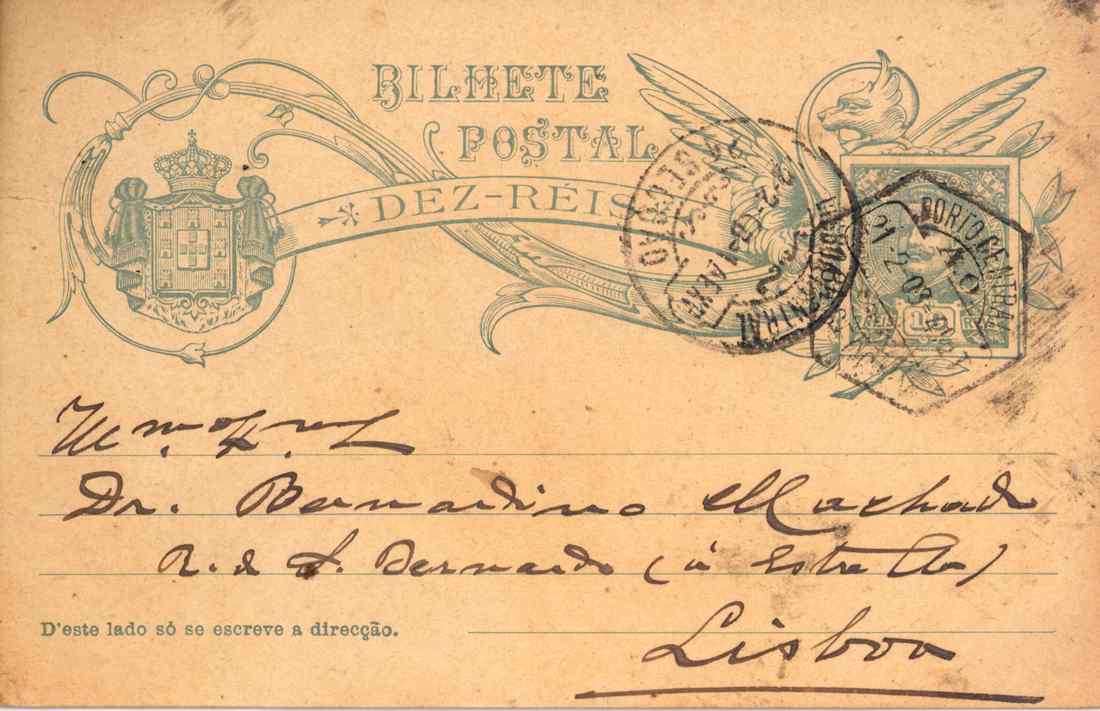 BILHETE
POSTAL
DEZ-RÉIS
LISBOA CENTRAL
PORTO CENTRAL
21 2 03
RÉIS 10 RÉIS
Dr. Bernardino Machado
R. de S. Bernardo (á Estrella)
Lisboa
D'este lado só se escreve a direcção.